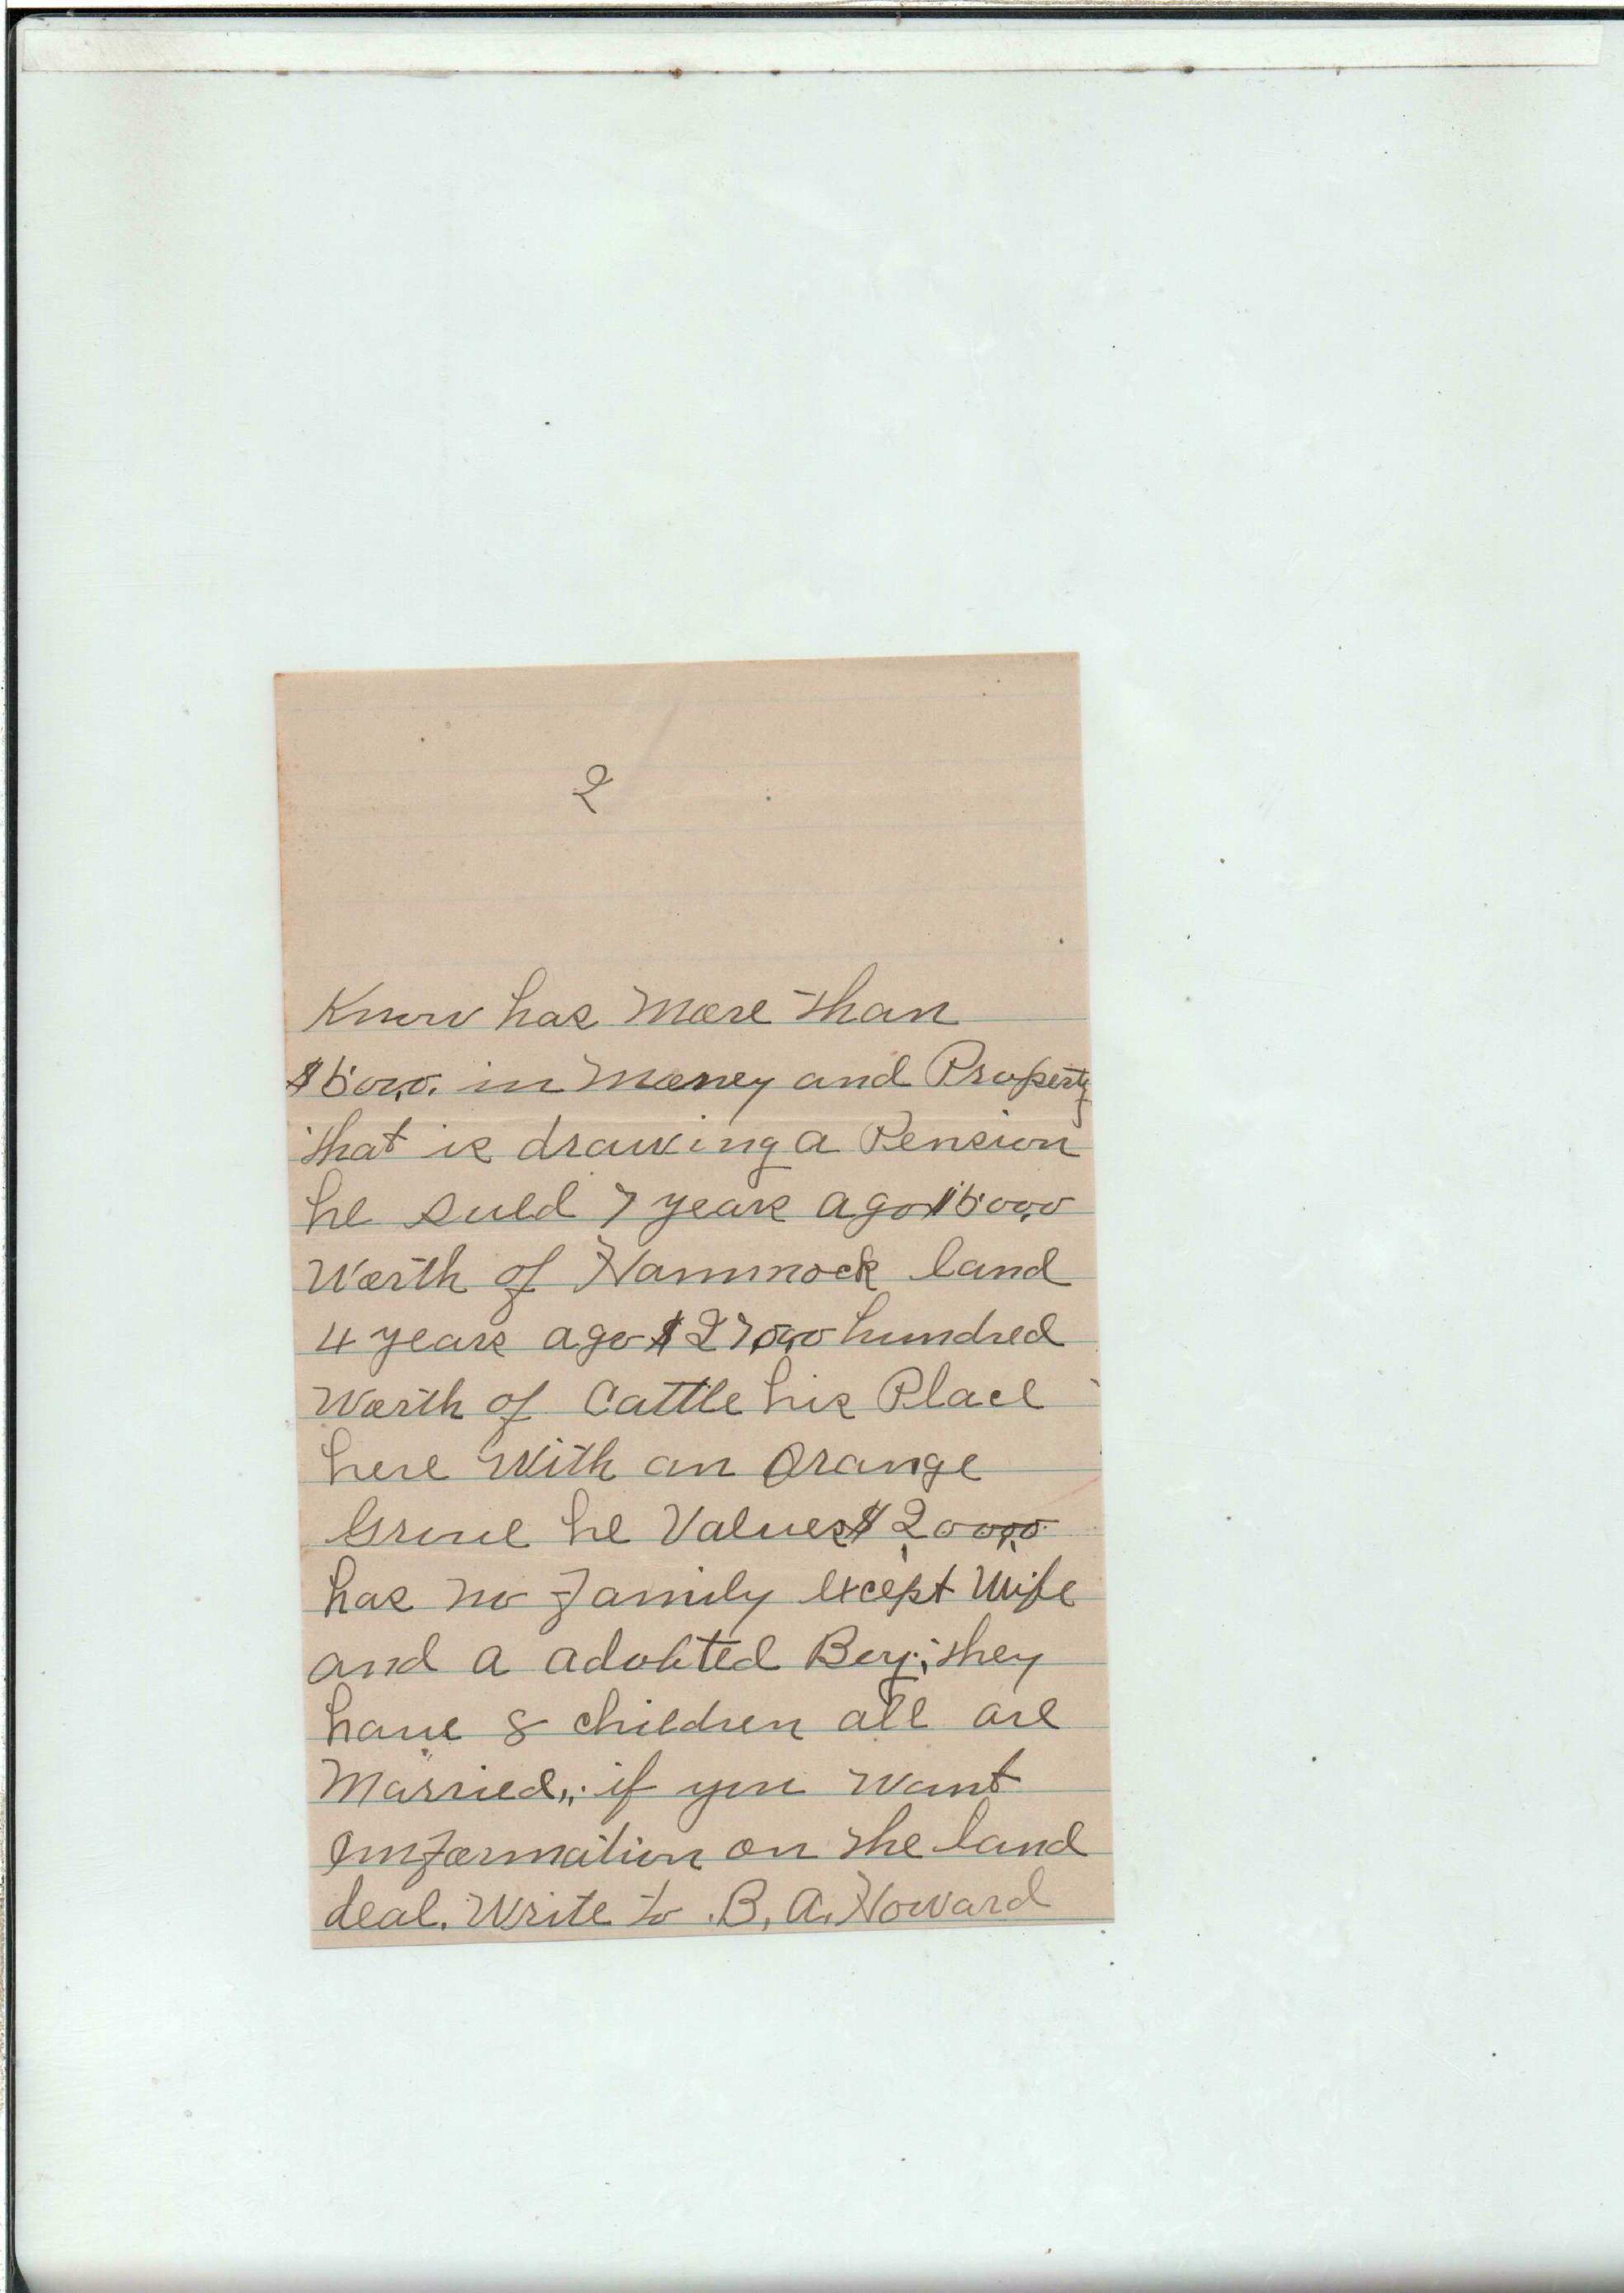 2
Know has More than
$6000. in Money and Property
that is drawing a Pension
he sold 7 years ago $6000
Worth of Hammock land
4 years ago $27,00 hundred
Worth of Cattle his Place
here With an Orange
Grove he Values $20000
has no family except Wife
and a adopted Boy; they
have 8 children all are
Married,, if you want
Imformation on the land
deal. Write to B, A, Howard